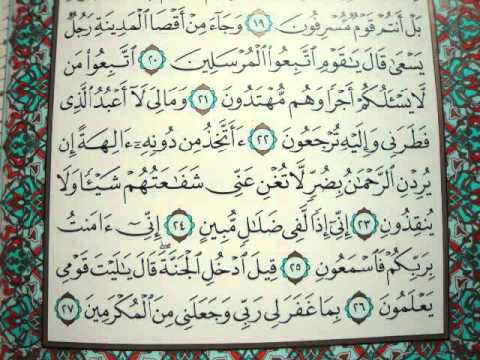 بَلْ أَنتُمْ قَوْمٌ مُّسْرِفُونَ ١٩ وَجَآءَ مِنْ أَقْصَا ٱلْمَدِينَةِ رَجُلٌ
يَسْعَىٰ قَالَ يَٰقَوْمِ ٱتَّبِعُوا۟ ٱلْمُرْسَلِينَ ٢٠ ٱتَّبِعُوا۟ مَن
لَّا يَسْـَٔلُكُمْ أَجْرًا وَهُم مُّهْتَدُونَ ٢١ وَمَالِىَ لَآ أَعْبُدُ ٱلَّذِى
فَطَرَنِى وَإِلَيْهِ تُرْجَعُونَ ٢٢ ءَأَتَّخِذُ مِن دُونِهِۦٓ ءَالِهَةً إِن
يُرِدْنِ ٱلرَّحْمَٰنُ بِضُرٍّ لَّا تُغْنِ عَنِّى شَفَٰعَتُهُمْ شَيْـًٔا وَلَا
يُنقِذُونِ ٢٣ إِنِّىٓ إِذًا لَّفِى ضَلَٰلٍ مُّبِينٍ ٢٤ إِنِّىٓ ءَامَنتُ
بِرَبِّكُمْ فَٱسْمَعُونِ ٢٥ قِيلَ ٱدْخُلِ ٱلْجَنَّةَ ۖ قَالَ يَٰلَيْتَ قَوْمِى
يَعْلَمُونَ ٢٦ بِمَا غَفَرَ لِى رَبِّى وَجَعَلَنِى مِنَ ٱلْمُكْرَمِينَ ٢٧